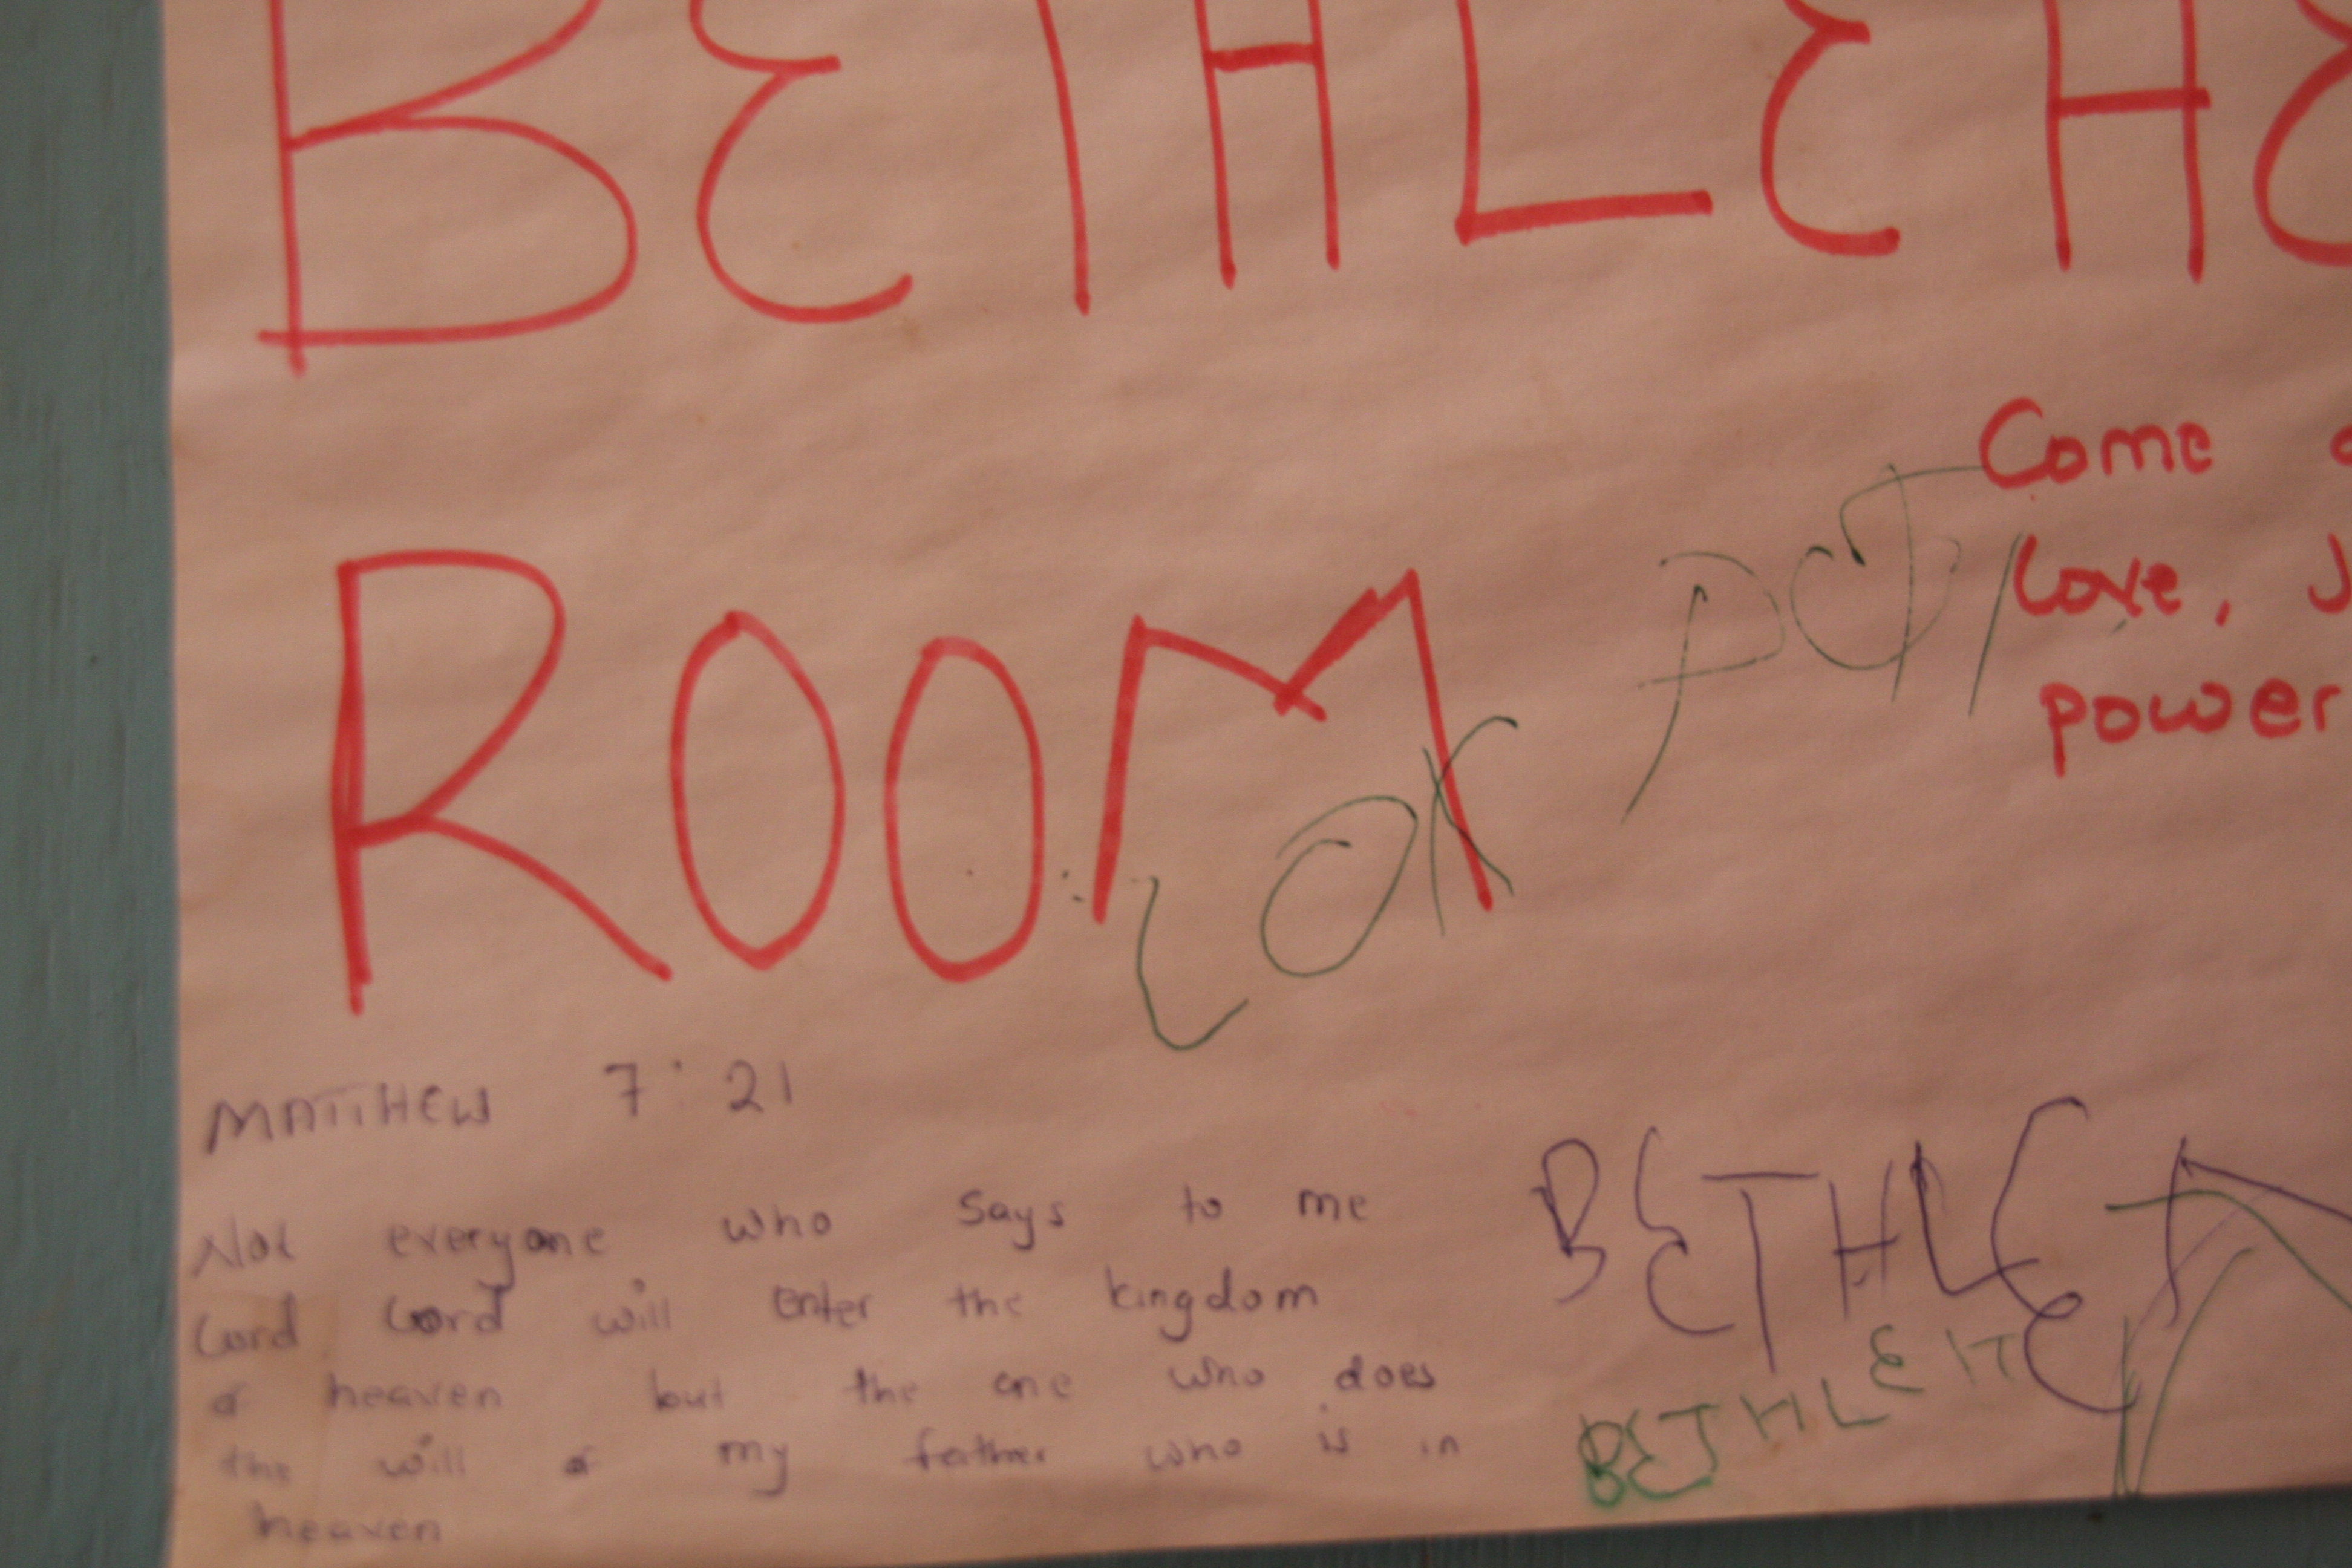 BETHLEHE
ROOM
Come
Love, J
power
LOK
MATTHEW 7:21
Not everyone who says to me
Lord Lord will enter the kingdom
of heaven but the one who does
the will of my father who is in
heaven
BETHLE
BETHLE